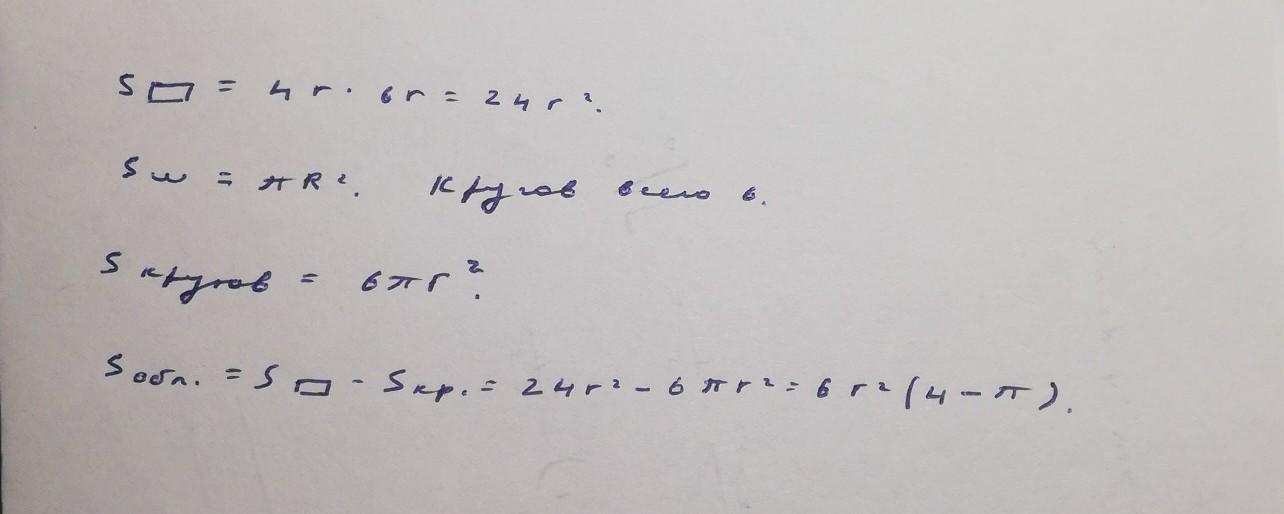 S▭ = 4r · 6r = 24r².
Sш = πR². Кругов всего 6.
S кругов = 6πr².
S обл. = S▭ - Sкр. = 24r² - 6πr² = 6r²(4 - π).